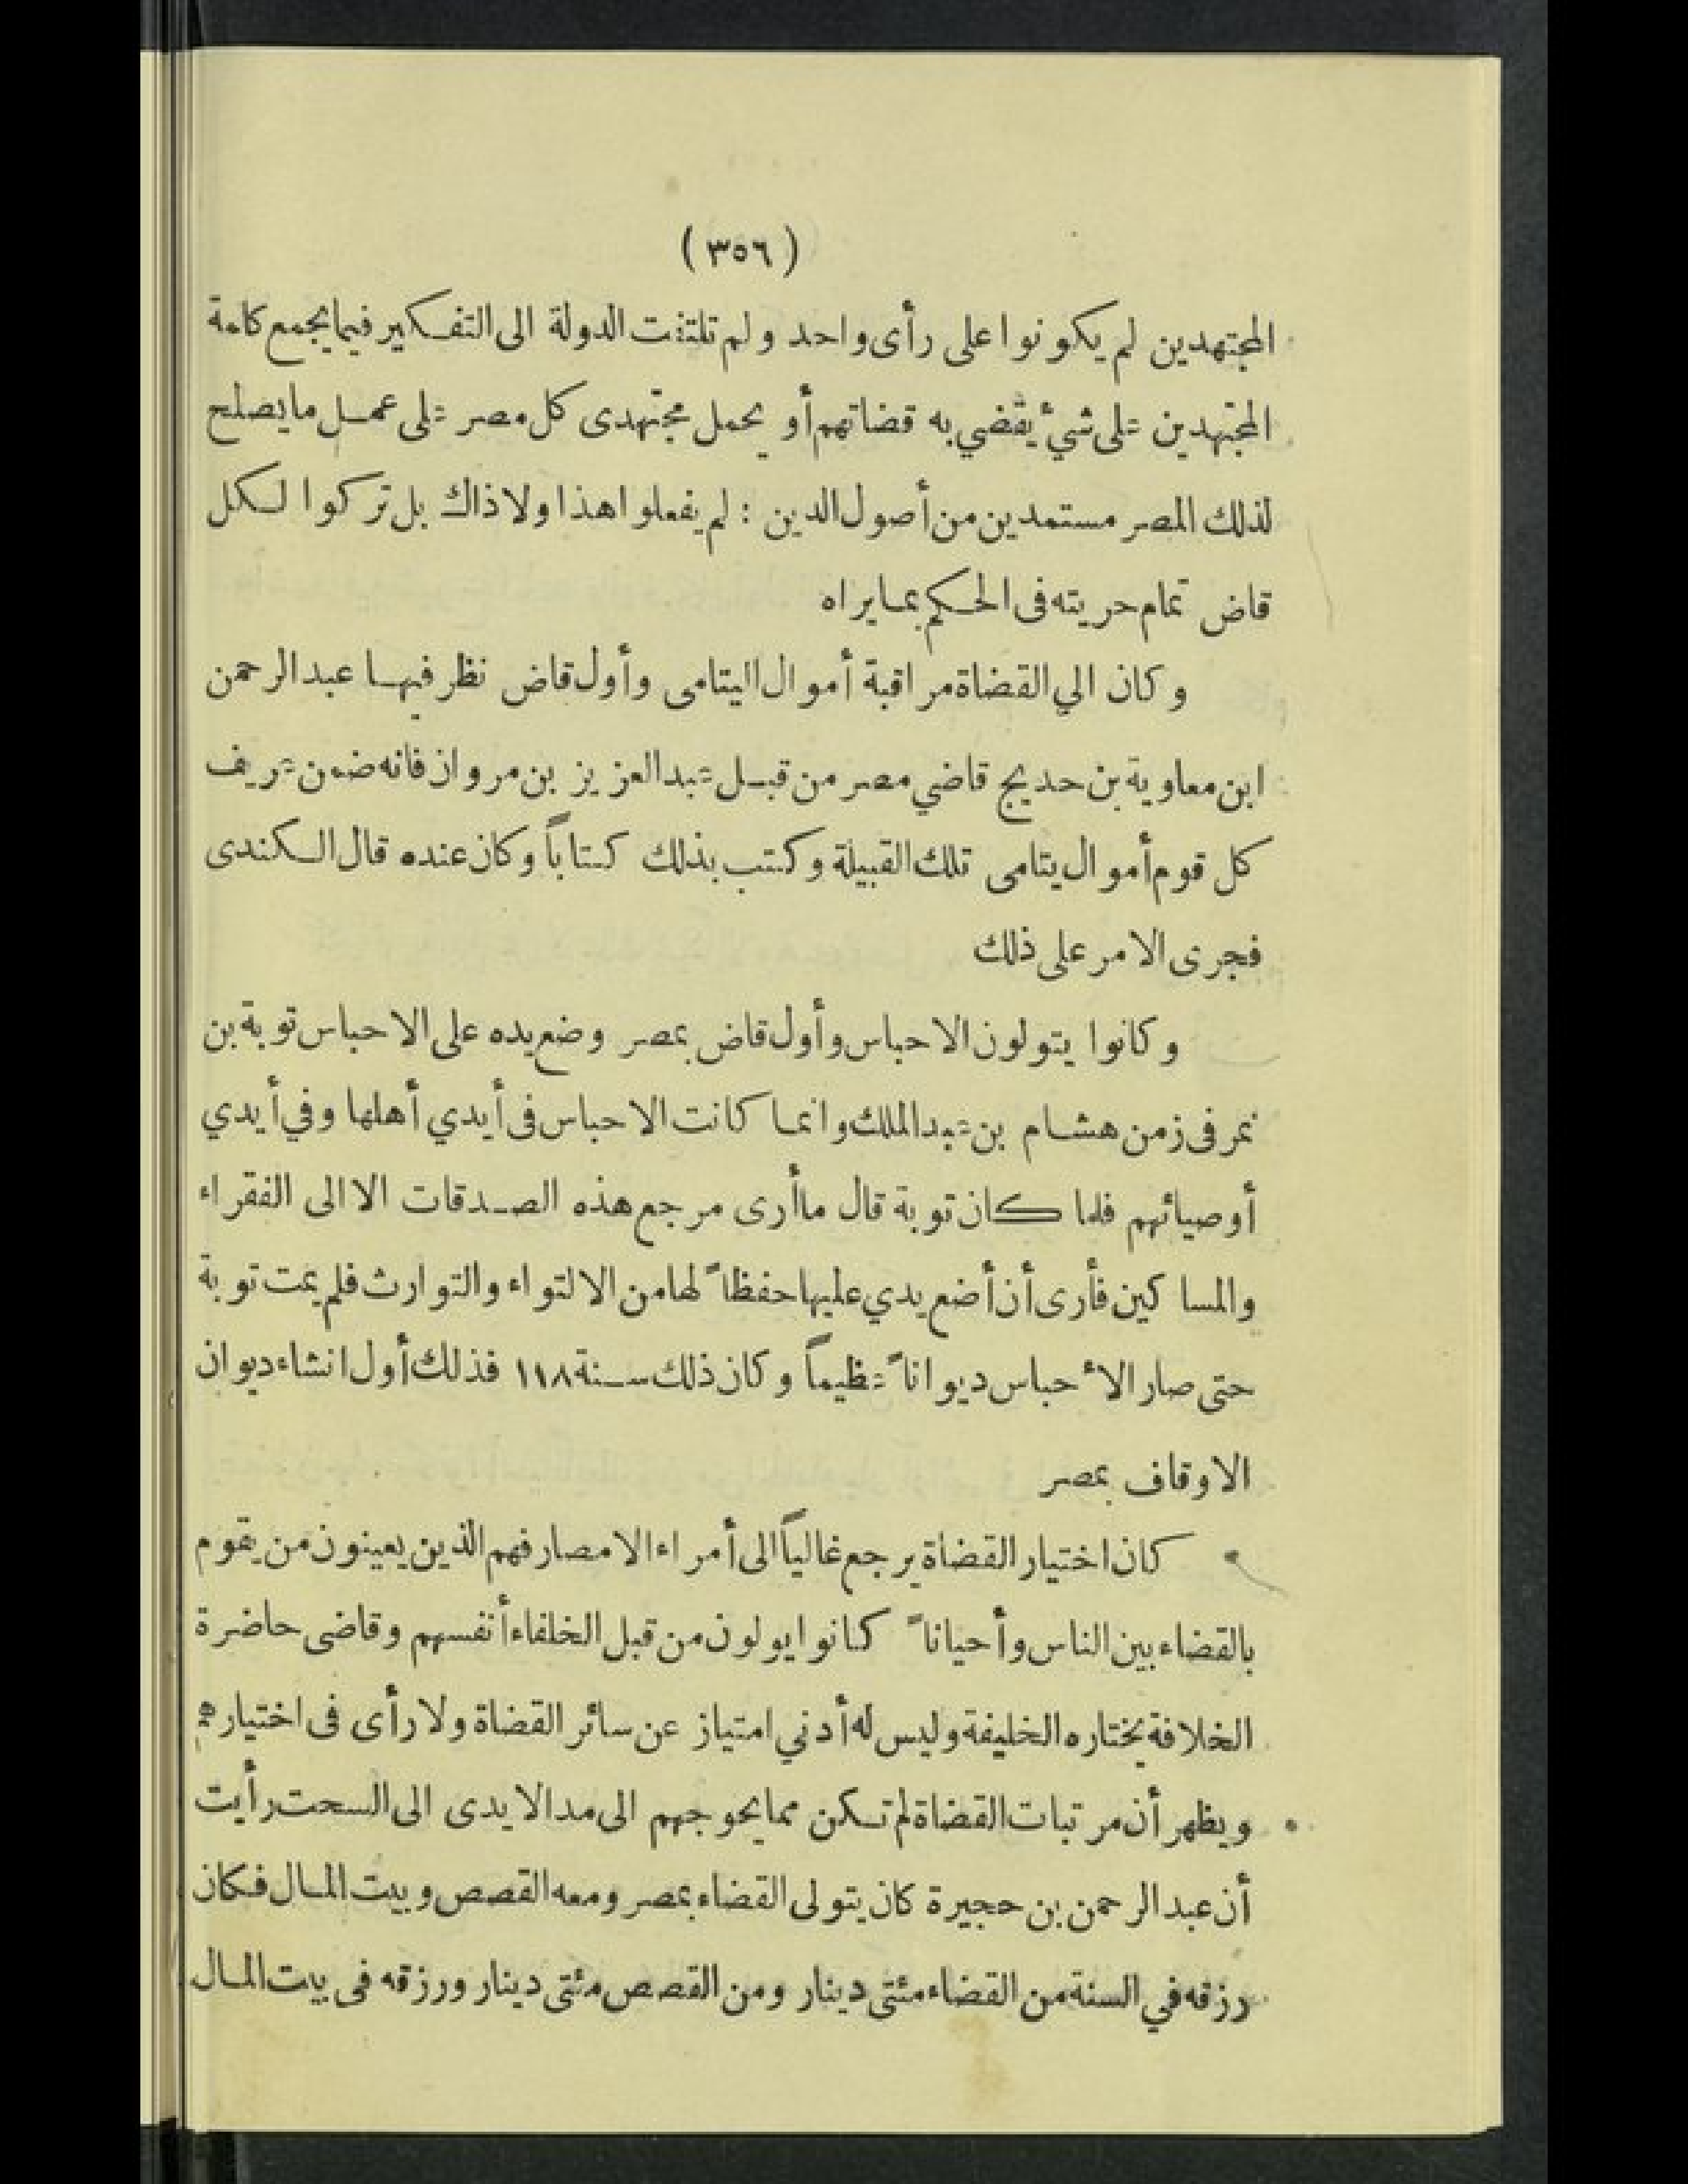 (٣٥٦)
المجتهدين لم يكونوا على رأى واحد ولم تلتفت الدولة الى التفكير فيما يجمع كلمة
المجتهدين على شيء يقضي به قضاتهم أو يحمل مجتهدى كل مصر على عمل ما يصلح
لذلك المصر مستمدين من أصول الدين : لم يفعلوا هذا ولا ذاك بل تركوا لكل
قاض تمام حريته فى الحكم بما يراه
وكان الي القضاة مراقبة أموال اليتامى وأول قاض نظر فيها عبد الرحمن
ابن معاوية بن حديج قاضي مصر من قبل عبد العزيز بن مروان فانه ضمن عريف
كل قوم أموال يتامى تلك القبيلة وكتب بذلك كتاباً وكان عنده قال الكندى
فجرى الامر على ذلك
وكانوا يتولون الاحباس وأول قاض بمصر وضع يده على الاحباس توبة بن
نمر فى زمن هشام بن عبد الملك وانما كانت الاحباس فى أيدي أهلها وفي أيدي
أوصيائهم فلما كان توبة قال ما أرى مرجع هذه الصدقات الا الى الفقراء
والمساكين فأرى أن أضع يدي عليها حفظاً لها من الالتواء والتوارث فلم يمت توبة
حتى صار الأحباس ديواناً عظيماً وكان ذلك سنة ١١٨ فذلك أول انشاء ديوان
الاوقاف بمصر
كان اختيار القضاة يرجع غالباً الى أمراء الامصار فهم الذين يعينون من يقوم
بالقضاء بين الناس وأحياناً كانوا يولون من قبل الخلفاء أنفسهم وقاضى حاضرة
الخلافة يختاره الخليفة وليس له أدني امتياز عن سائر القضاة ولا رأى فى اختيارهم
ويظهر أن مرتبات القضاة لم تكن مما يحوجهم الى مد الايدى الى السحت رأيت
أن عبد الرحمن بن حجيرة كان يتولى القضاء بمصر ومعه القصص وبيت المال فكان
رزقه في السنة من القضاء مئتى دينار ومن القصص مئتى دينار ورزقه فى بيت المال